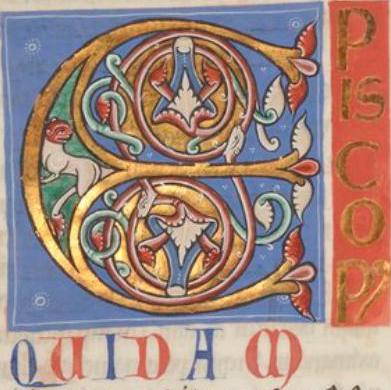 EPISCOPI
QUIDAM